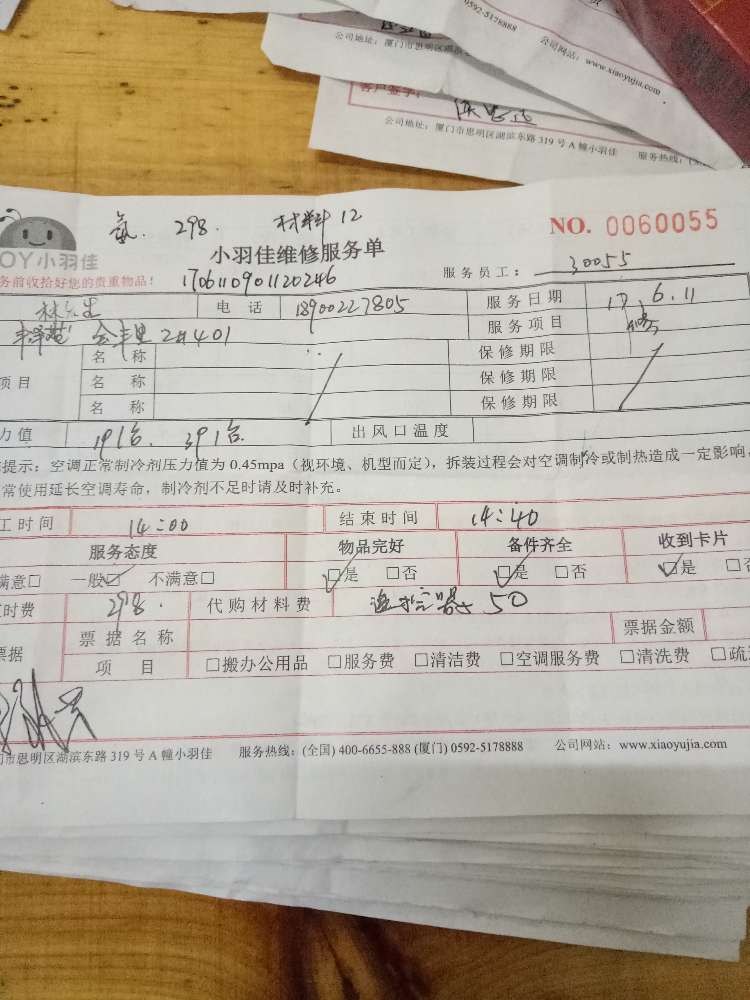 0592-5178888 公司网站：www.xiaoyujia.com
公司地址：厦门市思明区湖滨
客户签字：
公司地址：厦门市思明区湖滨东路 319 号 A 幢小羽佳 服务热线：(
氨. 298. 材料 12
NO. 0060055
OY小羽佳
小羽佳维修服务单
务前收拾好您的贵重物品！
1706110901120246
服务员工： 30055
林先生 电 话 18900227805 服务日期 17, 6.11
2#401 服务项目 修
名 称 保修期限
项目 名 称 保修期限
名 称 保修期限
力值 1月1台. 3月1台 出风口温度
提示：空调正常制冷剂压力值为 0.45mpa（视环境、机型而定），拆装过程会对空调制冷或制热造成一定影响，
常使用延长空调寿命，制冷剂不足时请及时补充。
工时间 14:00 结束时间 14:40
服务态度 物品完好 备件齐全 收到卡片
满意□ 一般☑ 不满意□ ☑是 □否 ☑是 □否 ☑是 □否
时费 298. 代购材料费 遥控器 50
票据 票据名称 票据金额
项 目 □搬办公用品 □服务费 □清洁费 □空调服务费 □清洗费 □疏
门市思明区湖滨东路 319 号 A 幢小羽佳 服务热线：(全国) 400-6655-888 (厦门) 0592-5178888 公司网站：www.xiaoyujia.com